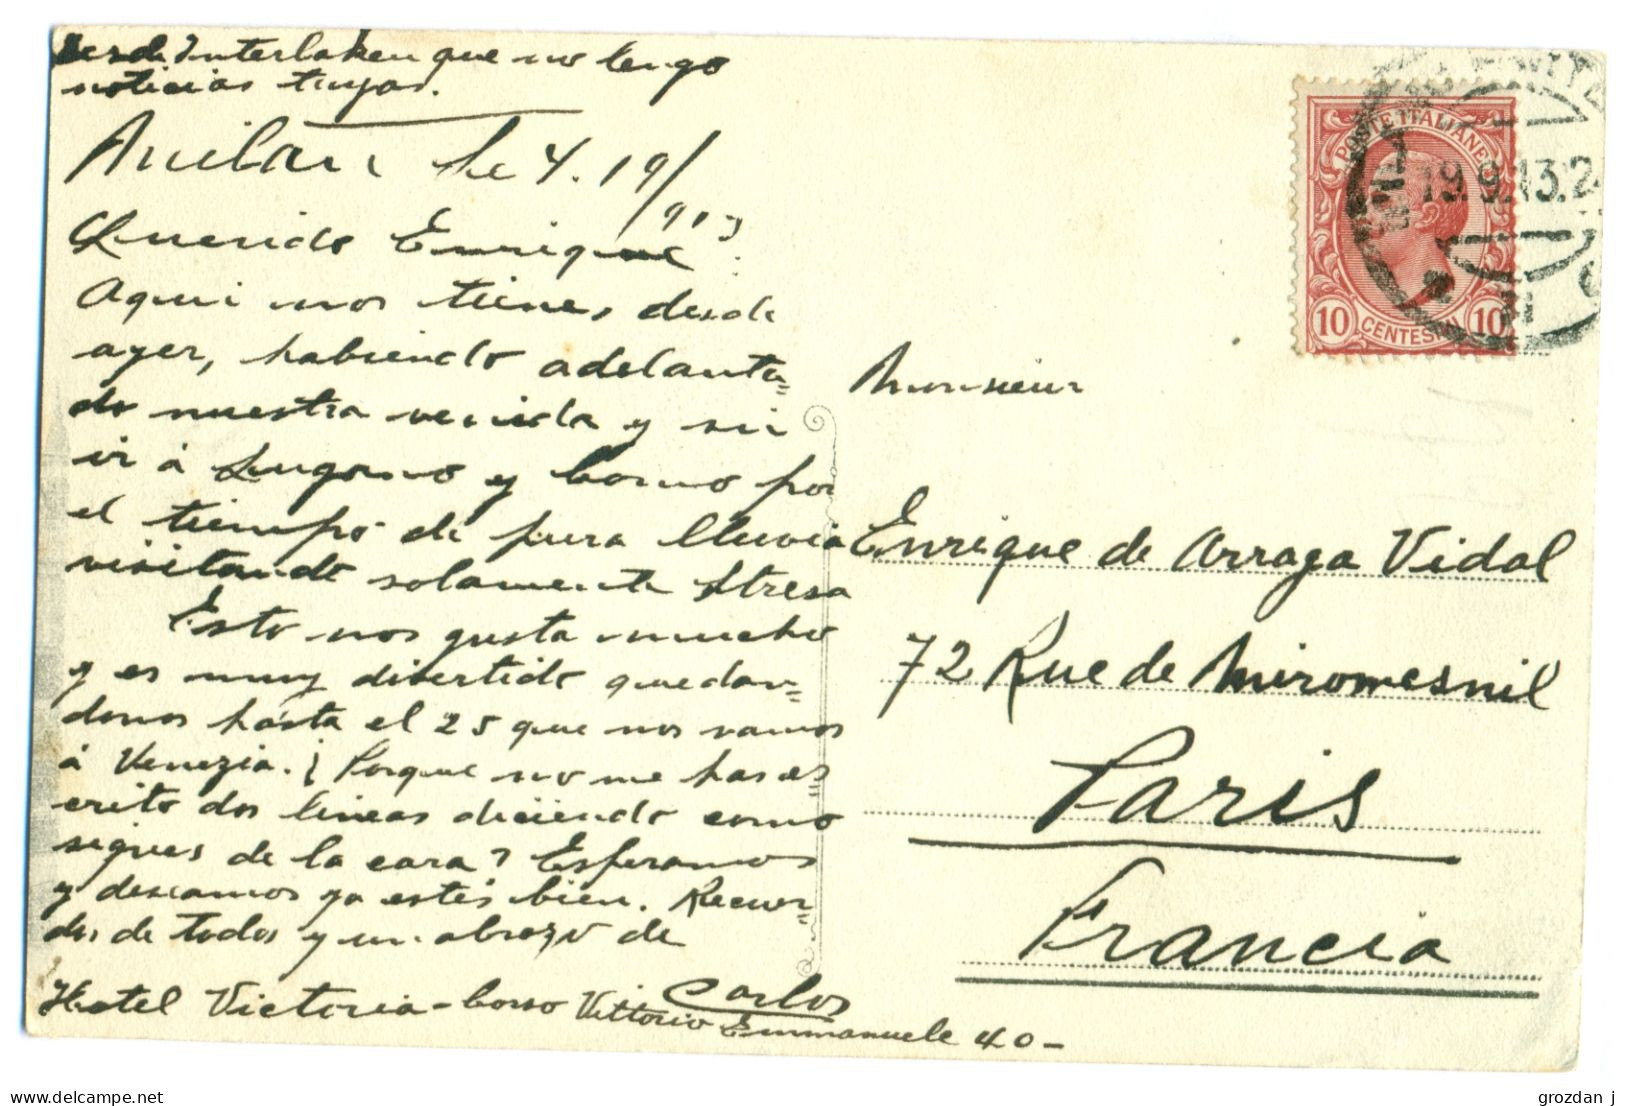 desde Interlaken que no tengo
noticias tuyas.
Milan Set. 19/
913
Querido Enrique:
Aqui nos tienes desde
ayer, habiendo adelanta=
do nuestra venida y sin
ir á Lugano y Como por
el tiempo de pura lluvia
visitando solamente Stresa
Esto nos gusta mucho
y es muy divertido quedan=
donos hásta el 25 que nos vamos
á Venezia. ¿Porque no me has es=
crito dos lineas diciendo como
sigues de la cara? Esperamos
y deseamos ya estés bien. Recuer=
dos de todos y un abrazo de
Carlos
Hotel Victoria - Corso Vittorio Emmanuele 40 -
POSTE ITALIANE
10 CENTESIMI 10
19.9.13.2
Monsieur
Enrique de Arraga Vidal
72 Rue de Miromesnil
Paris
Francia
grozdan j